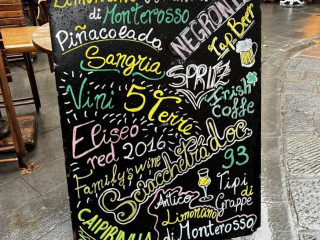 Limoncino
di Monterosso
Piñacolada
NEGRONI
Tap Beer
Sangria
SPRITZ
Vini 5 Terre
Irish
Coffe
Eliseo
red 2016
Family's wine
Sciacchetrà doc
93
Antico
Tipi
di
Grappe
Limoncino
di Monterosso
CAIPIRINHA